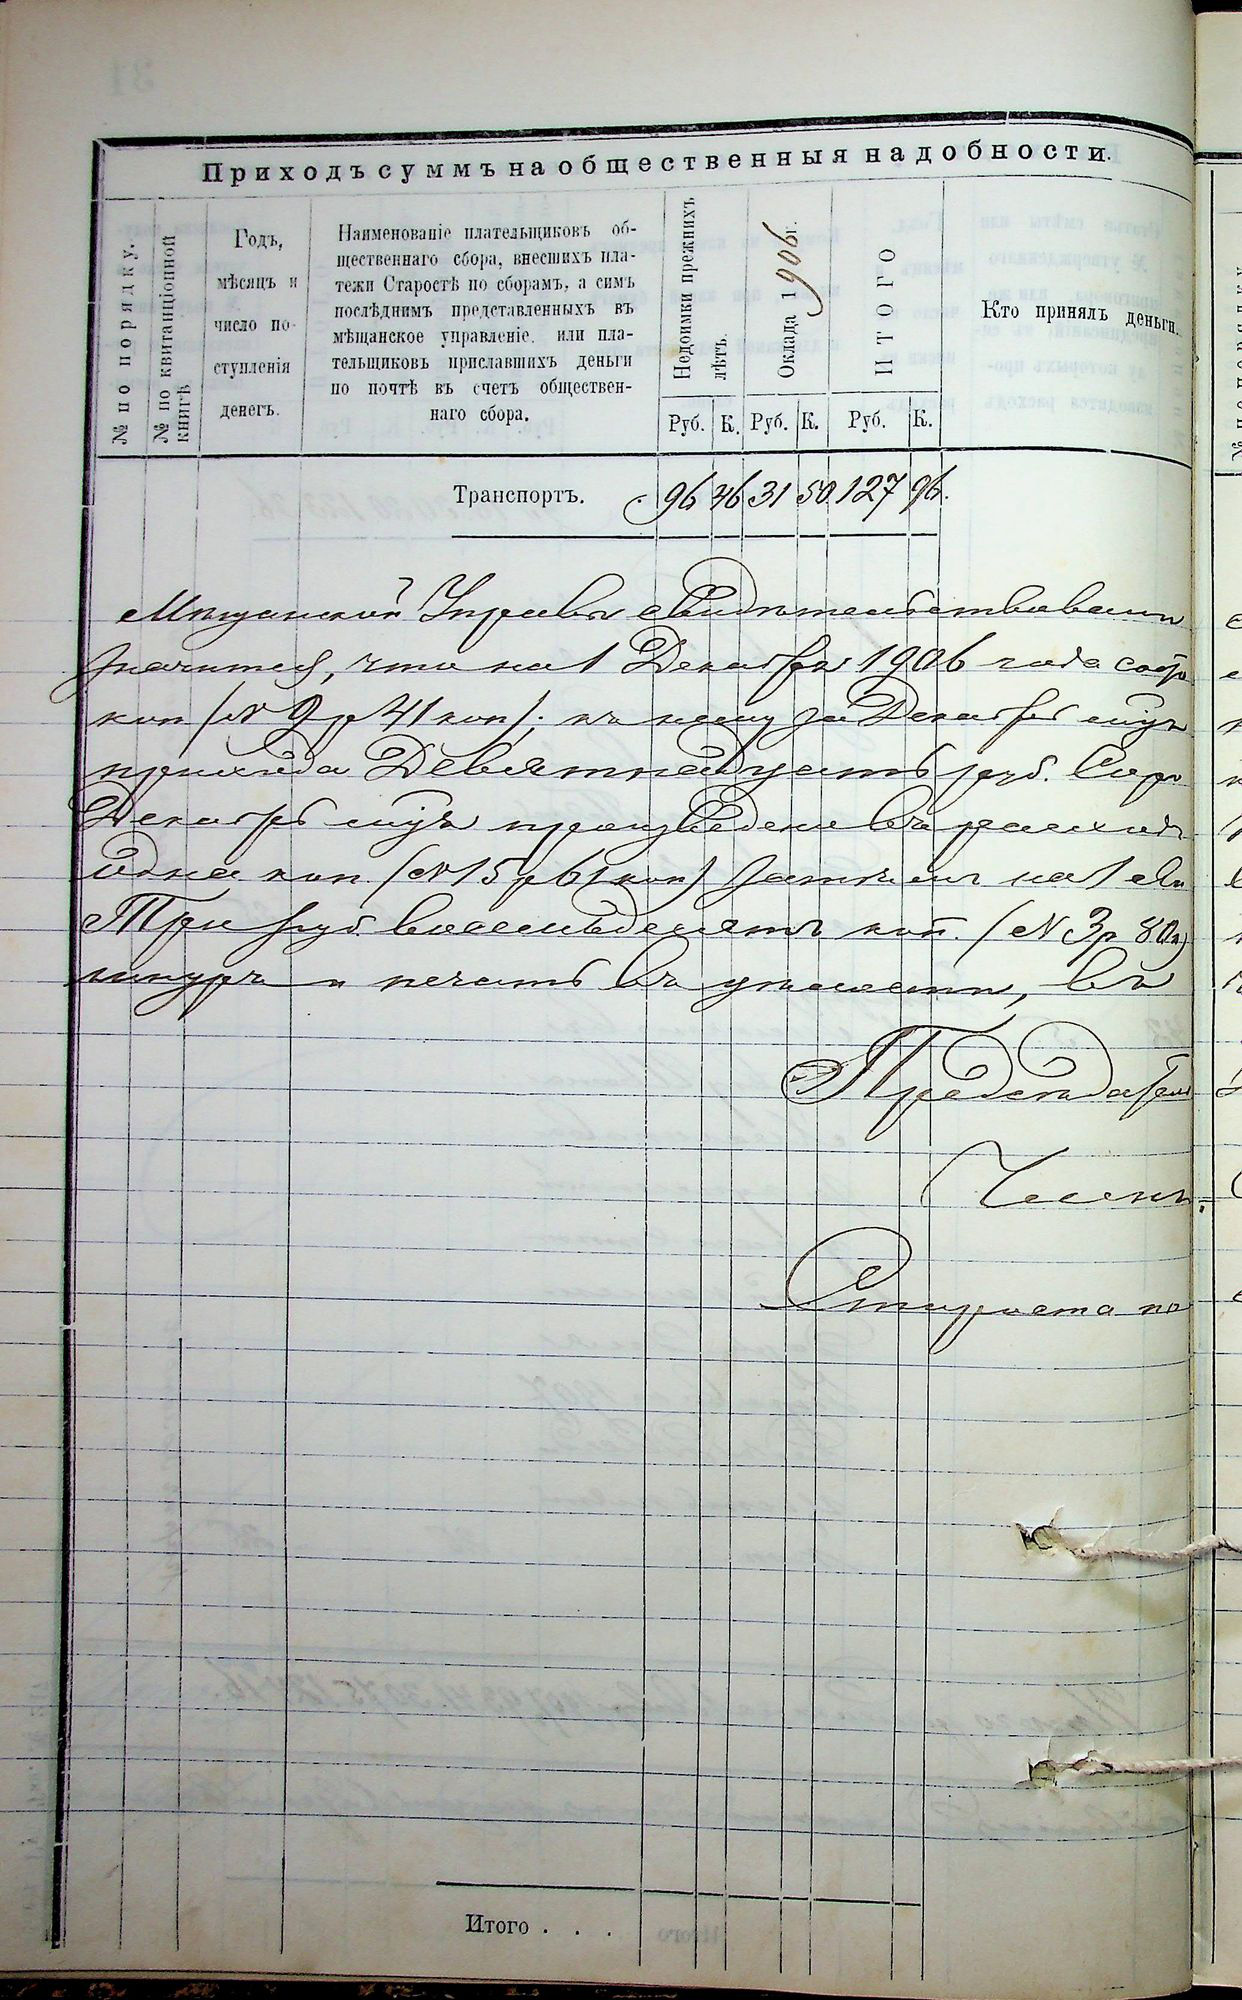 Приходъ суммъ на общественныя надобности.
№ по порядку.
№ по квитанціонной
книгѣ
Годъ,
мѣсяцъ и
число по-
ступленія
денегъ.
Наименованіе плательщиковъ об-
щественнаго сбора, внесшихъ пла-
тежи Старостѣ по сборамъ, а симъ
послѣднимъ представленныхъ въ
мѣщанское управленіе, или пла-
тельщиковъ приславшихъ деньги
по почтѣ въ счетъ обществен-
наго сбора.
Недоимки прежнихъ
лѣтъ.
Оклада 1906 г.
ИТОГО
Кто принялъ деньги.
Руб. К. Руб. К. Руб. К.
Транспортъ. 96 46 31 50 127 96.
Мѣщанской Управы свидѣтельствовали
значится, что на 1 Декабря 1906 года
коп (№ 2 р 41 коп); къ нему за Декабрь мцъ
прихода Девятнадцать руб. Соро
Декабрь мцъ произведено въ расходъ
одна коп. (№ 15 р 61 коп) затѣмъ на 1 Ян
Три руб. восемьдесятъ коп. (№ 3 р 80 к)
шнуръ и печать въ цѣлости, въ
Предсѣдатель
Члены:
Староста по
Итого . . .